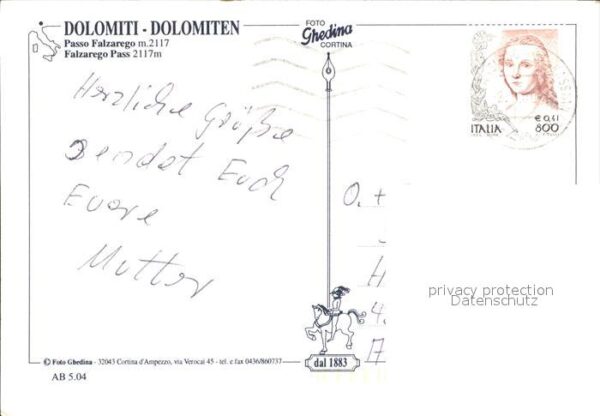 DOLOMITI - DOLOMITEN
Passo Falzarego m.2117
Falzarego Pass 2117m
FOTO
Ghedina
CORTINA
€ 0,41
ITALIA 800
Herzliche Grüße
sendet Euch
Euere
Mutter
privacy protection
Datenschutz
© Foto Ghedina - 32043 Cortina d'Ampezzo, via Verocai 45 - tel. e fax 0436/860737
dal 1883
AB 5.04